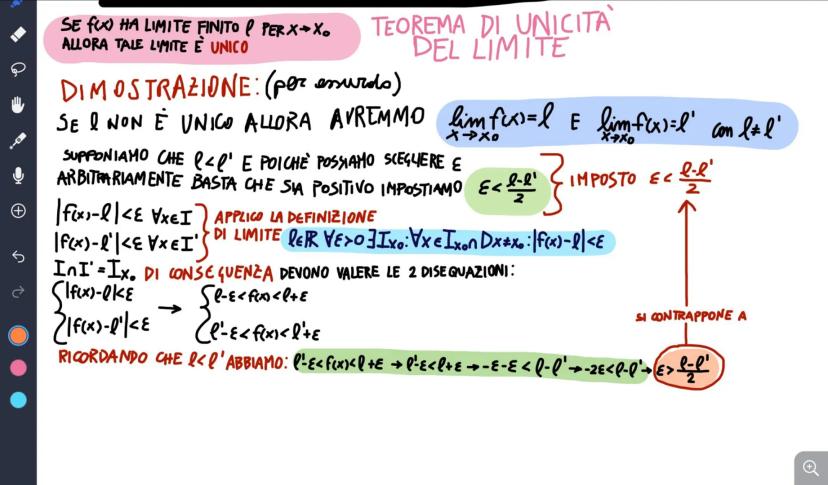 SE f(x) HA LIMITE FINITO ℓ PER X→X₀
ALLORA TALE LIMITE È UNICO
TEOREMA DI UNICITÀ
DEL LIMITE
DIMOSTRAZIONE: (per assurdo)
SE ℓ NON È UNICO ALLORA AVREMMO lim f(x)=ℓ E lim f(x)=ℓ' con ℓ≠ℓ'
X→X₀ X→X₀
SUPPONIAMO CHE ℓ<ℓ' E POICHÈ POSSIAMO SCEGLIERE ε
ARBITRARIAMENTE BASTA CHE SIA POSITIVO IMPOSTIAMO ε< (ℓ-ℓ')/2 } IMPOSTO ε< (ℓ-ℓ')/2
|f(x)-ℓ|<ε ∀x∈I } APPLICO LA DEFINIZIONE
|f(x)-ℓ'|<ε ∀x∈I' } DI LIMITE ℓ∈ℝ ∀ε>0 ∃Ix₀:∀x∈Ix₀∩D x≠x₀:|f(x)-ℓ|<ε
I∩I'=Ix₀ DI CONSEGUENZA DEVONO VALERE LE 2 DISEQUAZIONI:
{|f(x)-ℓ|<ε → {ℓ-ε<f(x)<ℓ+ε
{|f(x)-ℓ'|<ε {ℓ'-ε<f(x)<ℓ'+ε
SI CONTRAPPONE A
RICORDANDO CHE ℓ<ℓ' ABBIAMO: ℓ'-ε<f(x)<ℓ+ε → ℓ'-ε<ℓ+ε → -ε-ε<ℓ-ℓ' → -2ε<ℓ-ℓ' → ε> (ℓ-ℓ')/2